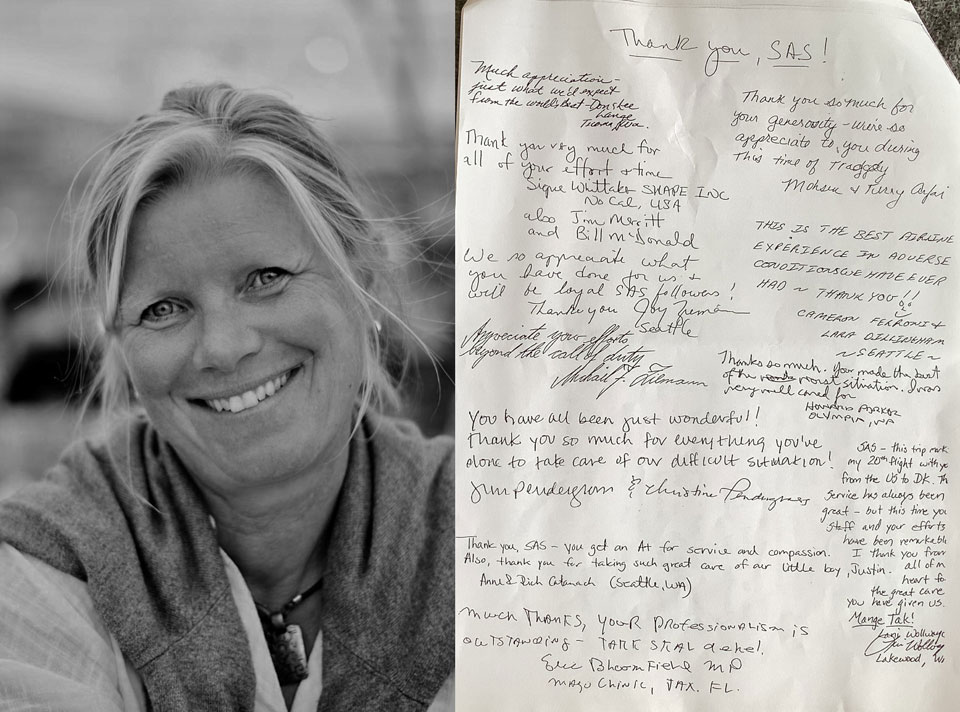 Thank you, SAS!
Much appreciation -
just what we'd expect
from the world's best -
Thank you very much for
all of your effort & time
Signe Whittaker SHAPE INC
No Cal, USA
also Jim Merritt
and Bill McDonald
We so appreciate what
you have done for us &
will be loyal SAS followers!
Thank you Joy
Seattle
Appreciate your efforts
beyond the call of duty
You have all been just wonderful!
Thank you so much for everything you've
done to take care of our difficult situation!
Jim Pendergrass & Christine Pendergrass
Thank you, SAS - you get an A+ for service and compassion.
Also, thank you for taking such great care of our little boy, Justin.
Anne & Rich Catanach (Seattle, WA)
Much Thanks, your professionalism is
outstanding -
Eric Bloomfield MD
Mayo Clinic, JAX. FL.
Thank you so much for
your generosity - we're so
appreciate to you during
This time of Tragedy
THIS IS THE BEST AIRLINE
EXPERIENCE IN ADVERSE
CONDITIONS WE HAVE EVER
HAD ~ THANK YOU!!
CAMERON FERRONI &
LARA DILLINGHAM
~ SEATTLE ~
Thanks so much. You made the best
of the worst situation. I was
very well cared for
HOWARD PARKER
OLYMPIA, WA
SAS - this trip
my 20th flight with
from the US to DK.
service has always been
great - but this time
staff and your efforts
have been
I thank you from
all of
heart
the great care
you have given us.
Mange Tak!
Lakewood,